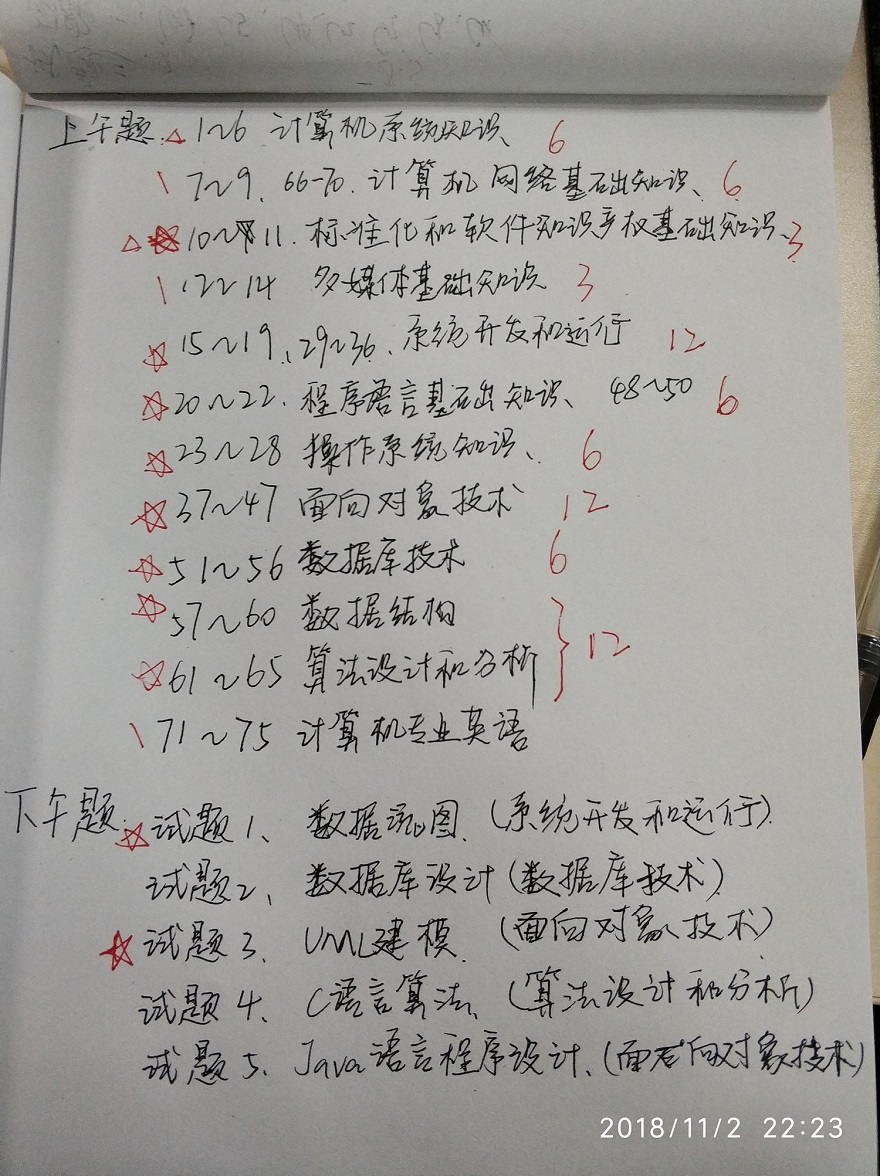 上午题. △ 1~6 计算机系统知识、 6
\ 7~9、66-70. 计算机网络基础知识、 6
△ ☆ 10~11. 标准化和软件知识产权基础知识、3
\ 12~14 多媒体基础知识 3
☆ 15~19、29~36、系统开发和运行 12
☆ 20~22. 程序语言基础知识、 48~50 6
☆ 23~28 操作系统知识、 6
☆ 37~47 面向对象技术 12
☆ 51~56 数据库技术 6
☆ 57~60 数据结构
☆ 61~65 算法设计和分析 } 12
\ 71~75 计算机专业英语
下午题. ☆ 试题1、数据流图 (系统开发和运行).
试题2、数据库设计 (数据库技术)
☆ 试题3、UML建模. (面向对象技术)
试题4、C语言算法、(算法设计和分析)
试题5、Java语言程序设计、(面向对象技术)
2018/11/2 22:23